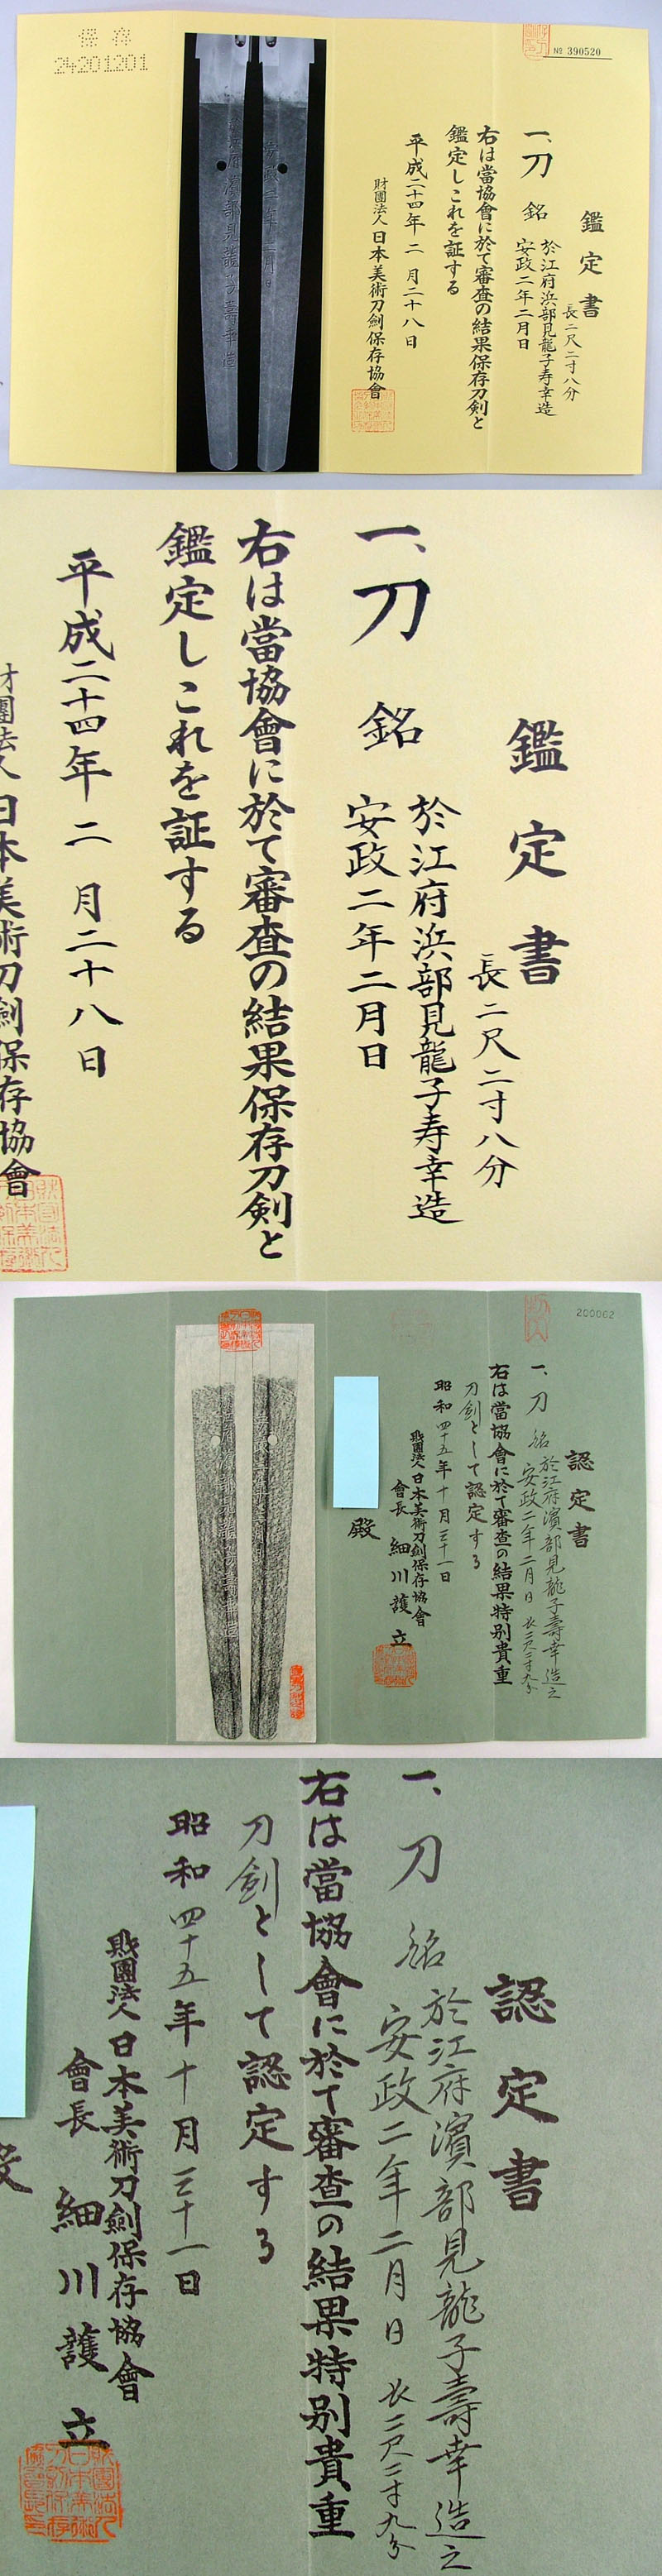 保存
24201201
№ 390520
鑑定書
長二尺二寸八分
一、刀 銘 於江府浜部見龍子寿幸造
安政二年二月日
右は當協會に於て審査の結果保存刀剣と
鑑定しこれを証する
平成二十四年二月二十八日
財團法人日本美術刀劍保存協會
鑑定書
長二尺二寸八分
一、刀 銘 於江府浜部見龍子寿幸造
安政二年二月日
右は當協會に於て審査の結果保存刀剣と
鑑定しこれを証する
平成二十四年二月二十八日
財團法人日本美術刀劍保存協會
200062
認定書
一、刀 銘 於江府濱部見龍子壽幸造之
安政二年二月日 長二尺二寸九分
右は當協會に於て審査の結果特別貴重
刀劍として認定する
昭和四十五年十月三十一日
財團法人日本美術刀劍保存協會
會長 細川護立
殿
認定書
一、刀 銘 於江府濱部見龍子壽幸造之
安政二年二月日 長二尺二寸九分
右は當協會に於て審査の結果特別貴重
刀劍として認定する
昭和四十五年十月三十一日
財團法人日本美術刀劍保存協會
會長 細川護立
殿